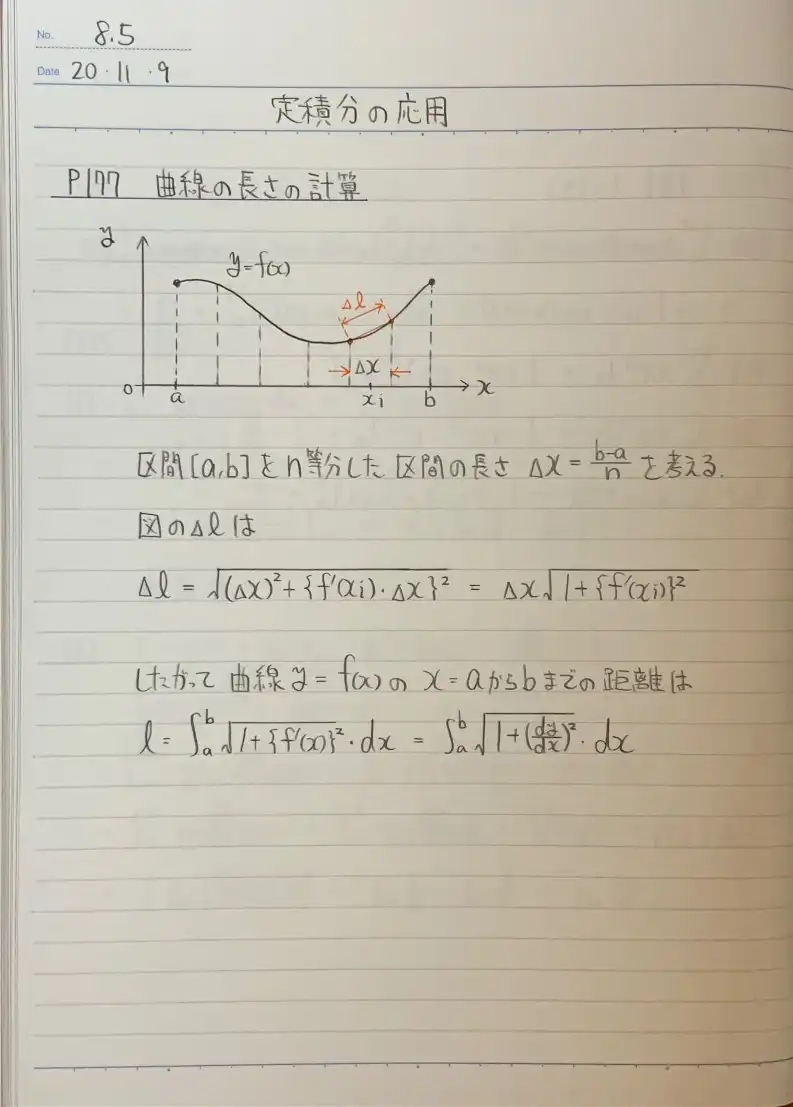 No. 8.5
Date 20・11・9
定積分の応用
P177 曲線の長さの計算
y
y=f(x)
Δl
Δx
o a xi b x
区間[a,b]をn等分した区間の長さ Δx = \frac{b-a}{n} を考える.
図のΔlは
Δl = √{(Δx)² + {f'(xi)・Δx}²} = Δx√{1+{f'(xi)}²}
したがって 曲線 y = f(x) の x = a から b までの 距離は
l = ∫_a^b √{1+{f'(x)}²}・dx = ∫_a^b √{1+(\frac{dy}{dx})²}・dx